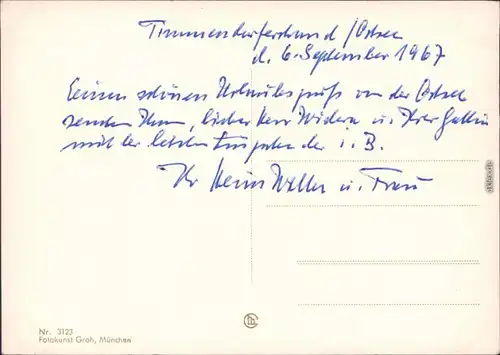 Timmendorferstrand / Ostsee
d. 6. September 1967
Einen schönen Urlaubsgruß von der Ostsee
senden Ihnen, lieber Herr Widera u. Ihrer Gattin
mit der letzten Ausgabe der i. B.
Ihr Heinz Weller u. Frau
Nr. 3123
Fotokunst Groh, München